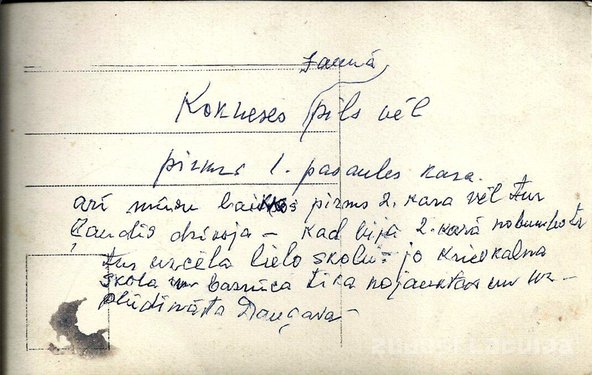 Jaunā
Kokneses pils vēl
pirms 1. pasaules kara.
arī mūsu laikos pirms 2. kara vēl tur
ļaudis dzīvoja – kad bija 2. karā nobumbota
tur uzcēla lielo skolu – jo Krievkalna
skola un baznīca tika nojauktas un uz-
plūdināta Daugava –